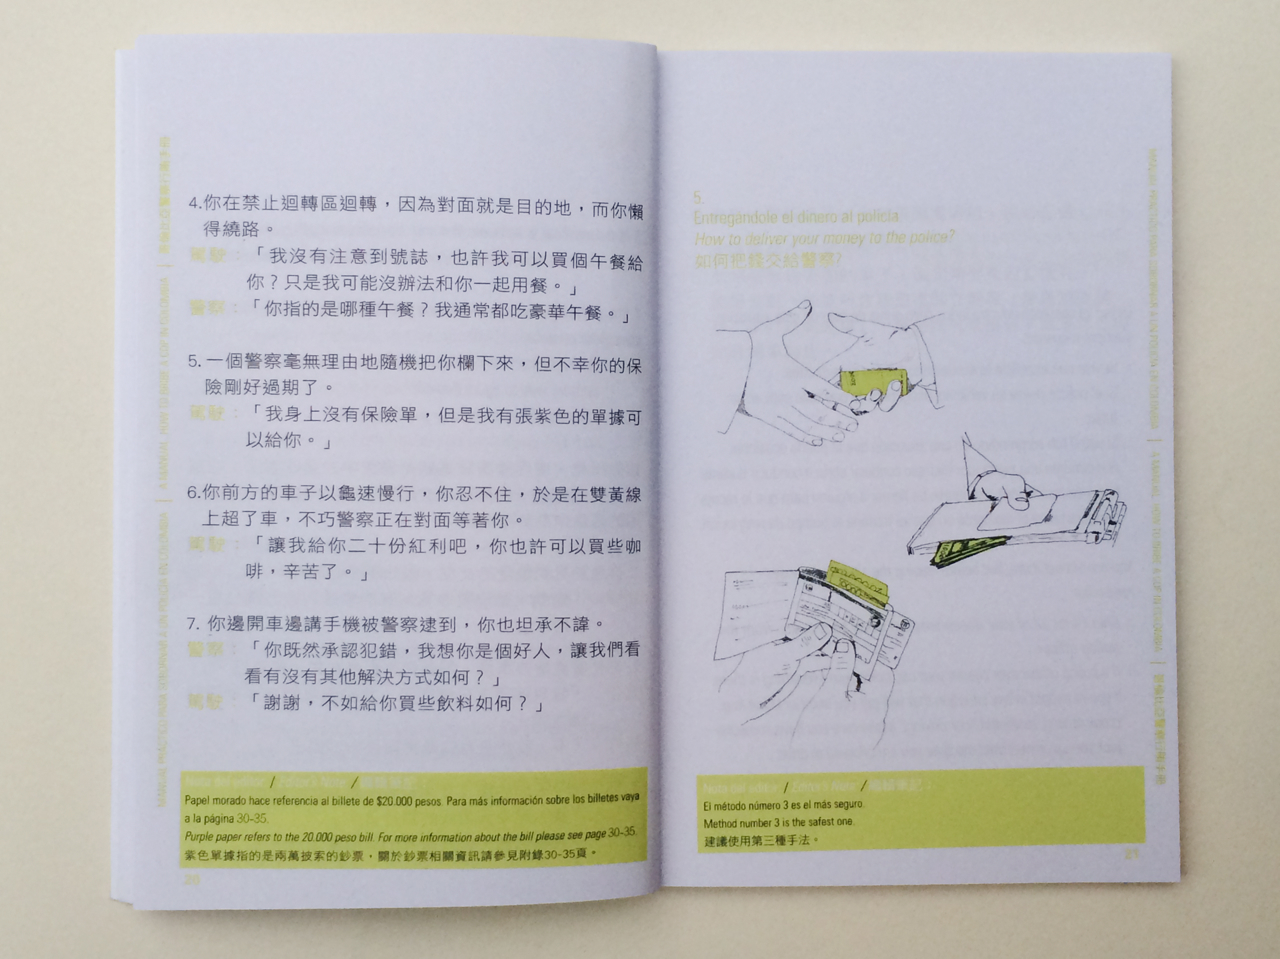 4.你在禁止迴轉區迴轉，因為對面就是目的地，而你懶
得繞路。
駕駛：「我沒有注意到號誌，也許我可以買個午餐給
你？只是我可能沒辦法和你一起用餐。」
警察：「你指的是哪種午餐？我通常都吃豪華午餐。」
5.一個警察毫無理由地隨機把你欄下來，但不幸你的保
險剛好過期了。
駕駛：「我身上沒有保險單，但是我有張紫色的單據可
以給你。」
6.你前方的車子以龜速慢行，你忍不住，於是在雙黃線
上超了車，不巧警察正在對面等著你。
駕駛：「讓我給你二十份紅利吧，你也許可以買些咖
啡，辛苦了。」
7. 你邊開車邊講手機被警察逮到，你也坦承不諱。
警察：「你既然承認犯錯，我想你是個好人，讓我們看
看有沒有其他解決方式如何？」
駕駛：「謝謝，不如給你買些飲料如何？」
Nota del editor / Editor's Note / 編輯筆記：
Papel morado hace referencia al billete de $20.000 pesos. Para más información sobre los billetes vaya
a la página 30-35.
Purple paper refers to the 20.000 peso bill. For more information about the bill please see page 30-35.
紫色單據指的是兩萬披索的鈔票，關於鈔票相關資訊請參見附錄30-35頁。
20
5.
Entregándole el dinero al policía
How to deliver your money to the police?
如何把錢交給警察?
Nota del editor / Editor's Note / 編輯筆記：
El método número 3 es el más seguro.
Method number 3 is the safest one.
建議使用第三種手法。
21